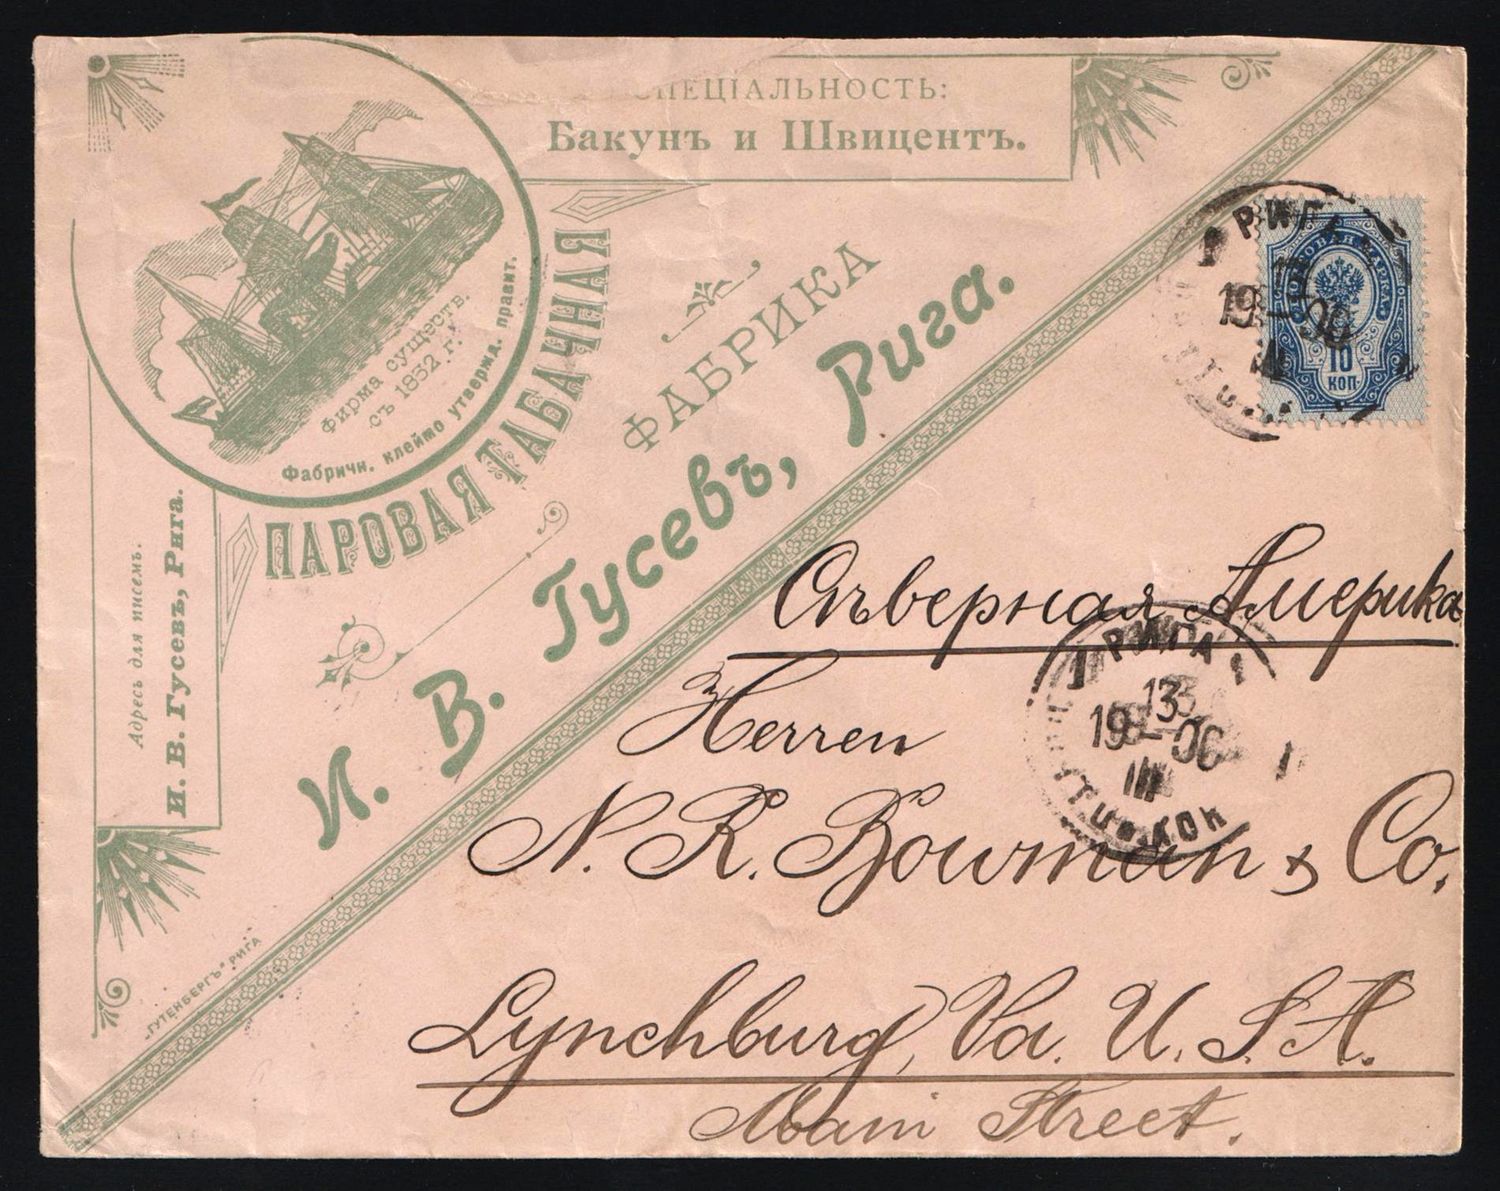 СПЕЦІАЛЬНОСТЬ:
Бакунъ и Швицентъ.
Фирма существ.
съ 1832 г.
Фабричн. клеймо утвержд. правит.
ПАРОВАЯ ТАБАЧНАЯ
ФАБРИКА
И. В. Гусевъ, Рига.
Адресъ для писемъ.
И. В. Гусевъ, Рига.
„ГУТЕНБЕРГЪ“ РИГА
РИГА
19 06
ПОЧТОВАЯ МАРКА
10
КОП
Сѣверная Америка
РИГА
13
19 06
III
Herren
N. R. Bowman & Co.
Lynchburg, Va. U. S. A.
Main Street.